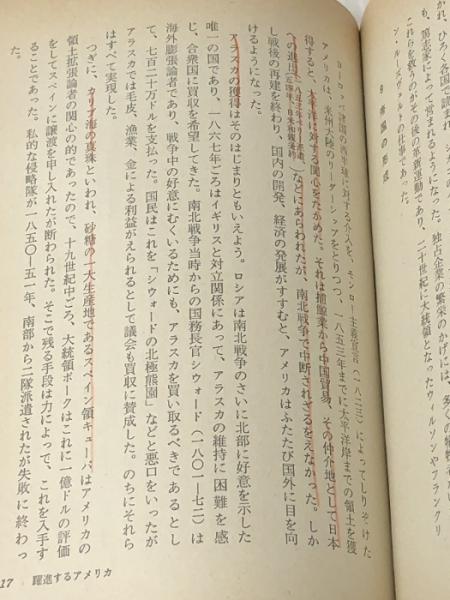 かれ、ひろく各国で読まれ、シ
も、篤志家によって営まれるようになった。独占企業の繁栄のかげには、多くの犠牲
これらを救うのがその後の革新運動であり、二十世紀に大統領となったウィルソンやフランクリ
ン・ルーズヴェルトの仕事であった。
8 帝国の形成
ヨーロッパ諸国の西半球に対する介入を、モンロー主義宣言(一八二三)によってしりぞけた
アメリカは、米州大陸のリーダーシップをとりつつ、一八五三年までに太平洋岸までの領土を獲
得すると、太平洋に対する関心をたかめた。それは捕鯨業から中国貿易、その仲介地として日本
への進出(一八五三年ペリー派遣、翌五四年、日米和親条約)などにあらわれたが、南北戦争で中断されざるをえなかった。しか
し戦後の再建を終わり、国内の開発、経済の発展がすすむと、アメリカはふたたび国外に目を向
けるようになった。
アラスカの獲得はそのはじまりともいえよう。ロシアは南北戦争のさいに北部に好意を示した
唯一の国であり、一八六七年ごろはイギリスと対立関係にあって、アラスカの維持に困難を感
じ、合衆国に買収を希望してきた。南北戦争当時からの国務長官シウォード(一八〇一-七二)は
海外膨張論者であり、戦争中の好意にむくいるためにも、アラスカを買い取るべきであるとし
て、七百二十万ドルを支払った。国民はこれを「シウォードの北極熊園」などと悪口をいったが
アラスカでは毛皮、漁業、金による利益がえられるとして議会も買収に賛成した。のちにそれら
はすべて実現した。
つぎに、カリブ海の真珠といわれ、砂糖の一大生産地であるスペイン領キューバはアメリカの
領土拡張論者の関心の的であったので、十九世紀中ごろ、大統領ポークはこれに一億ドルの評価
をしてスペインに譲渡を申し入れたが断わられた。そこで残る手段は力によって、これを入手す
ることであった。私的な侵略隊が一八五〇-五一年、南部から二隊派遣されたが失敗に終わっ
た。
17 躍進するアメリカ